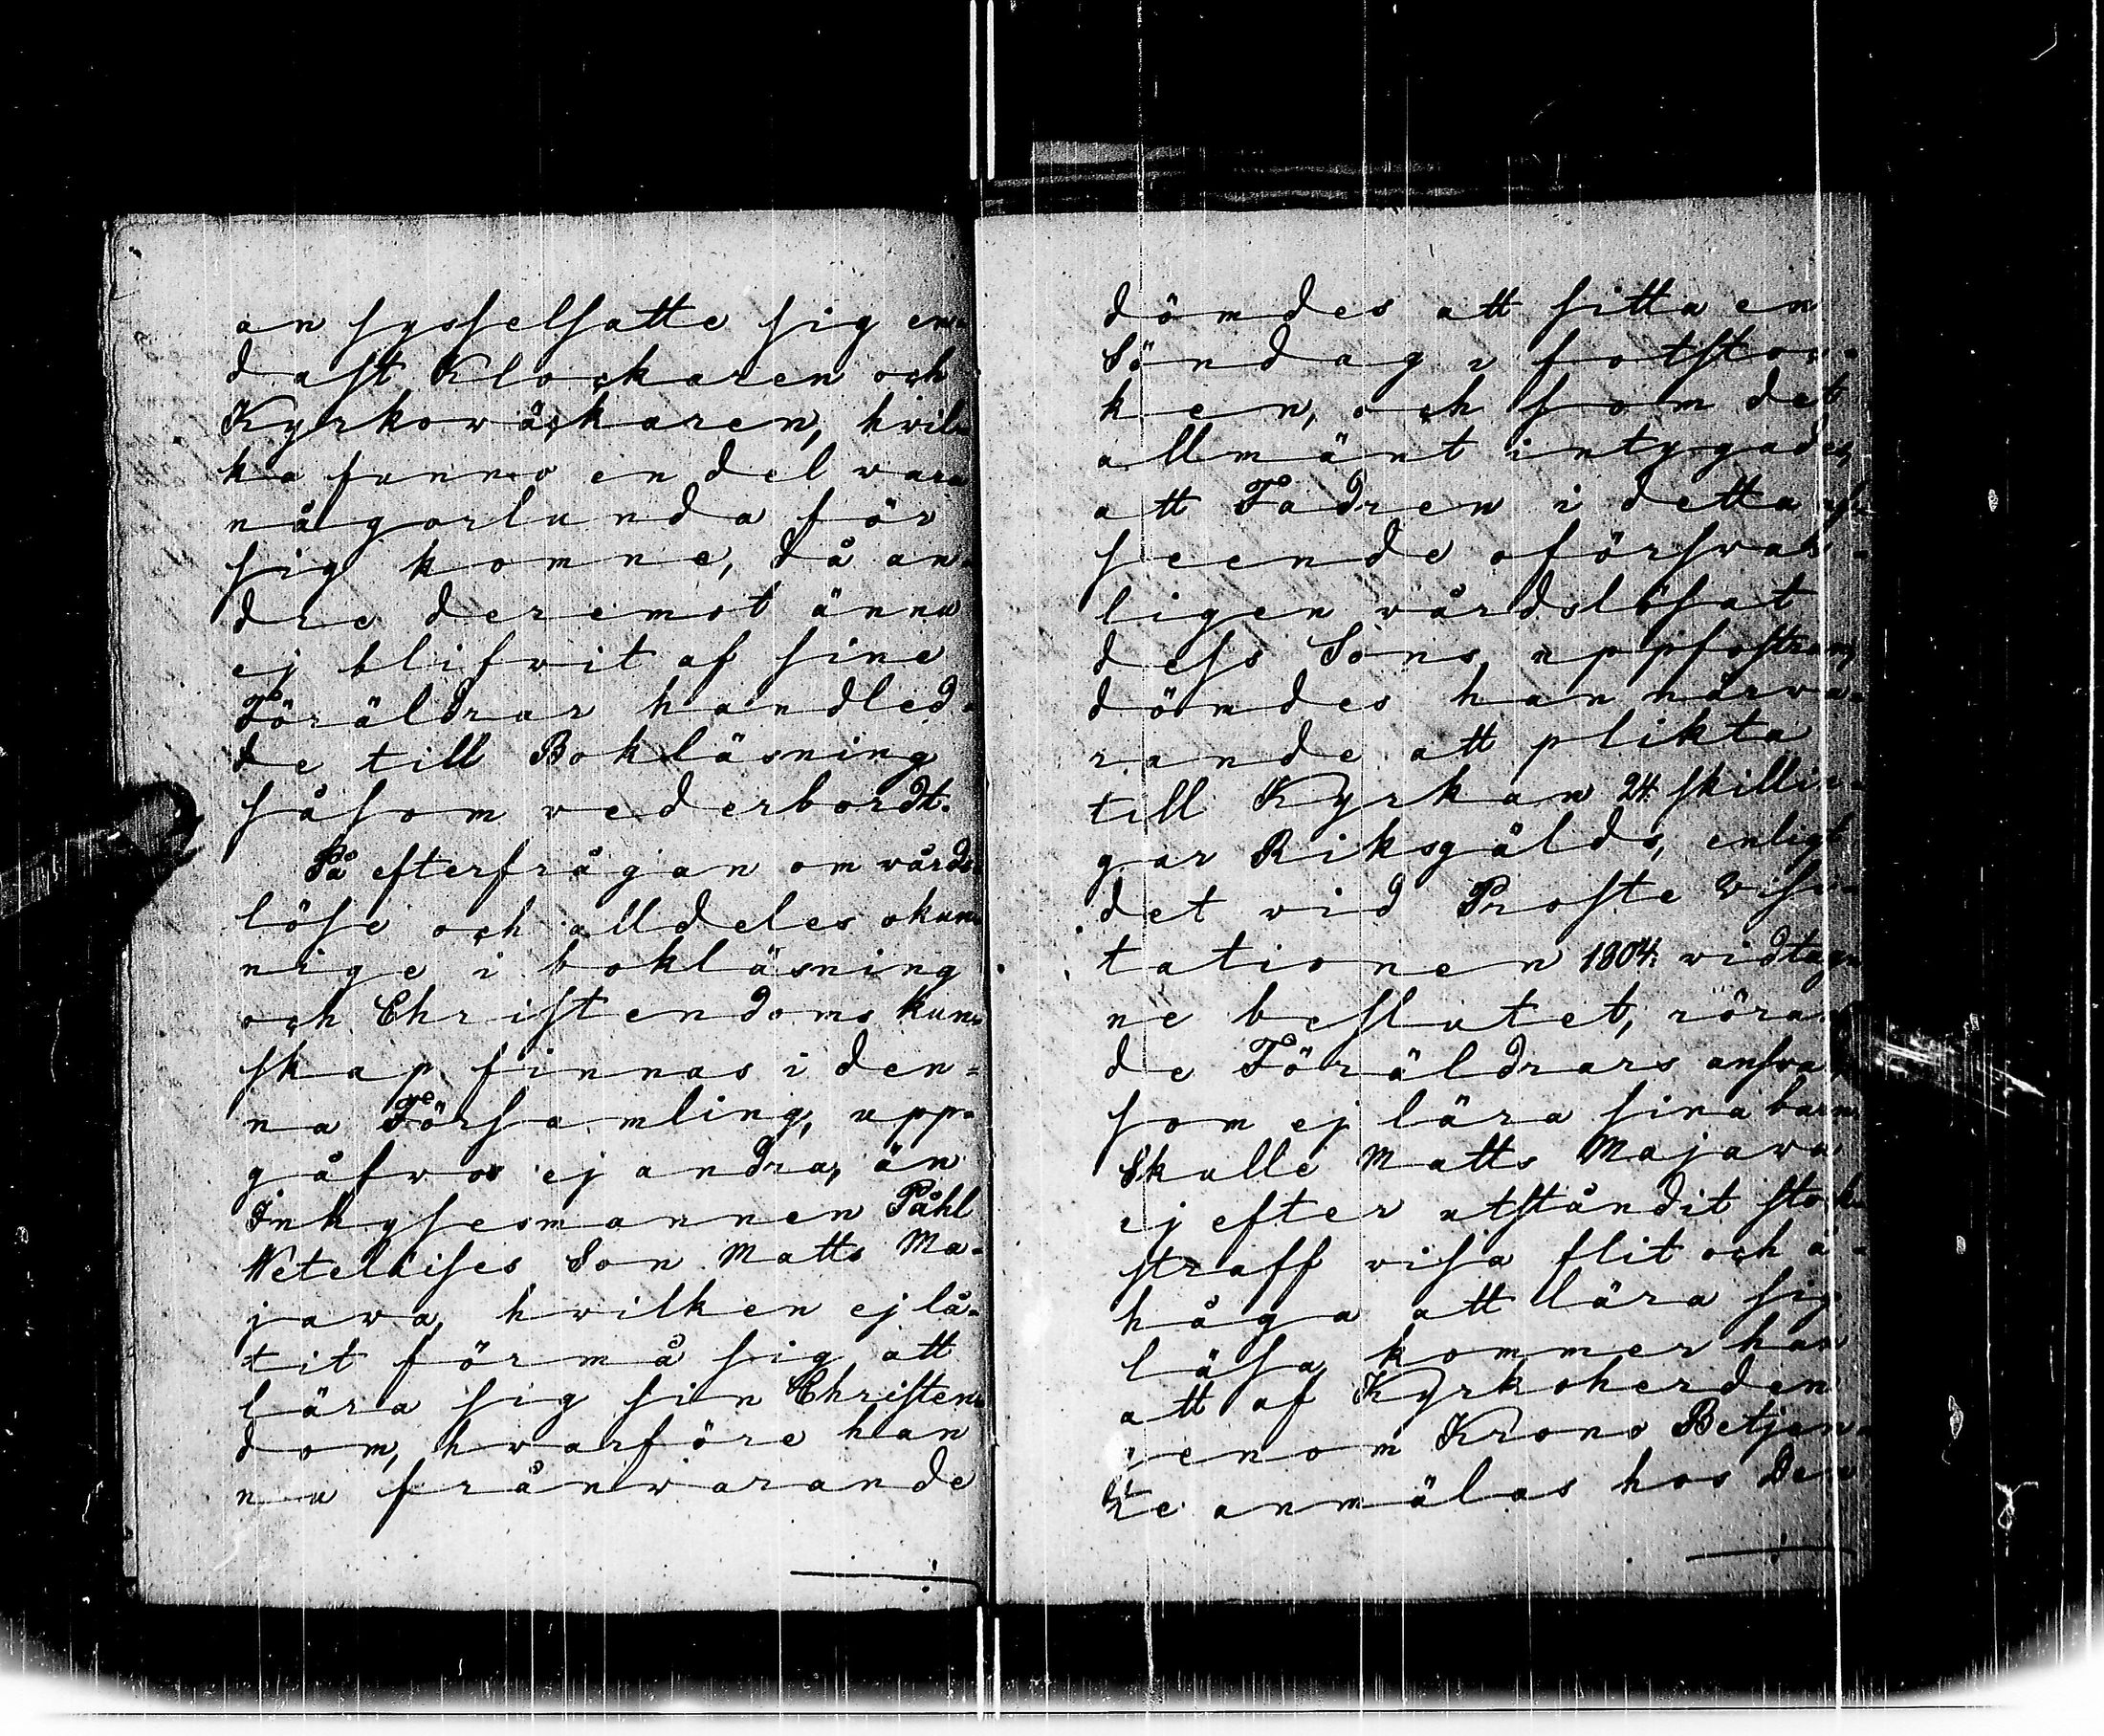 an sysselsatte sig en-
dast Klockaren och
Kyrkowäckaren, hvil-
ka funno en del vara
någorlunda för
sig komne, då an-
dre deremot ännu
ej blifvit af sine
Föräldrar handled-
de till Bokläsning
såsom vederbordt.
På efterfrågan om vårds-
löse och alldeles okun-
nige i bokläsning
och Christendoms kun-
skap finnas i den-
na Församling, upp-
gåfvos ej andra, än
Inhysesmannen Påhl
Son Matts Ma-
java, hvilken ej lå-
tit förmå sig att
lära sig sin Christen-
dom, hvarföre han
nu frånvarande
dömdes att sitta en
Söndag i fotstoc-
ken, och som det
allmänt intygades,
att Fadren i detta af-
seende oförsvar-
ligen vårdslösat
dess Sons uppfostran,
dömdes han närva-
rande att plikta
till Kyrkan 24 skillin-
gar Riksgälds, enligt
det vid Proste Visi-
tationen 1804 vidtag-
ne beslutet, röran-
de Föräldrars ansvar,
som ej lära sina barn.
Skulle Matts Majava
ej efter utståndit stock
straff visa flit och å-
håga att lära sig
läsa, kommer han
att af Kyrkoherden
genom Krono Betjen-
te anmälas hos Den